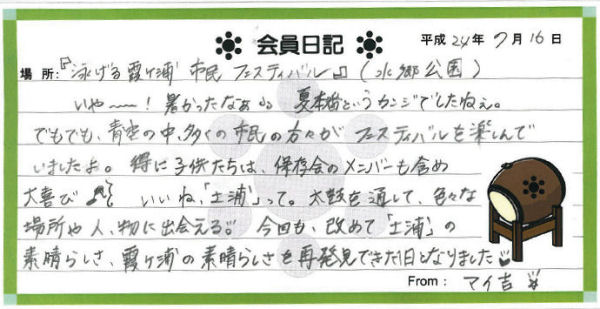 会員日記
平成24年7月16日
場所:『泳げる霞ヶ浦 市民フェスティバル』(水郷公園)
いや〜〜!暑かったなぁ。夏本番というカンジでしたねぇ。
でもでも、青空の中、多くの市民の方々がフェスティバルを楽しんで
いましたよ。特に子供たちは、保存会のメンバーも含め
大喜び♪ いいね、「土浦」って。太鼓を通して、色々な
場所や人、物に出会える。今回も、改めて「土浦」の
素晴らしさ、霞ヶ浦の素晴らしさを再発見できた1日となりました
From: マイ吉